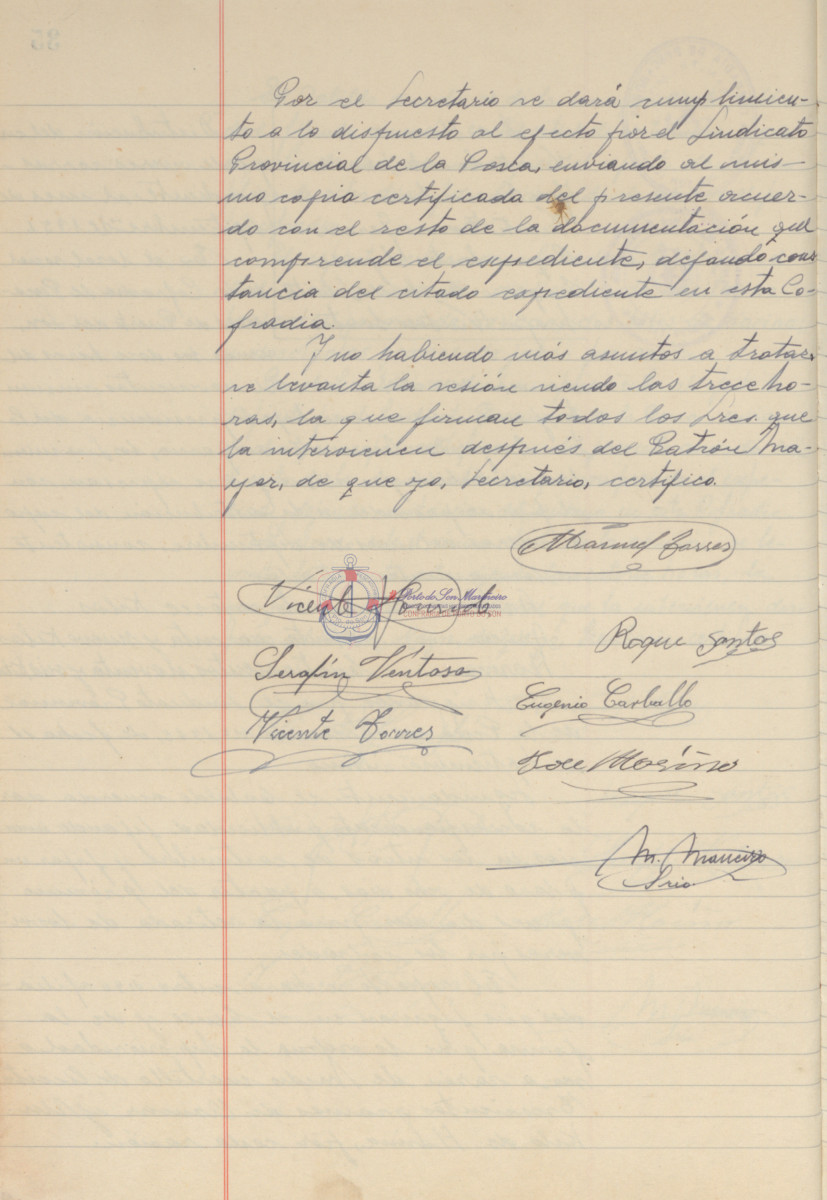 Por el Secretario se dará cumplimien-
to a lo dispuesto al efecto por el Sindicato
Provincial de la Pesca, enviando al mis-
mo copia certificada del presente acuer-
do con el resto de la documentación que
comprende el expediente, dejando cons
tancia del citado expediente en esta Co-
fradia.
Y no habiendo más asuntos a tratar,
se levanta la sesión siendo las trece ho-
ras, la que firman todos los Sres. que
la intervienen después del Patrón Ma-
yor, de que yo, Secretario, certifico.
Manuel Torres
Vicente
Porto do Son Mariñeiro
Roque Santos
Serafín Ventoso
Eugenio Carballo
Vicente Torres
Jose Mariño
M. Maneiro
Srio.